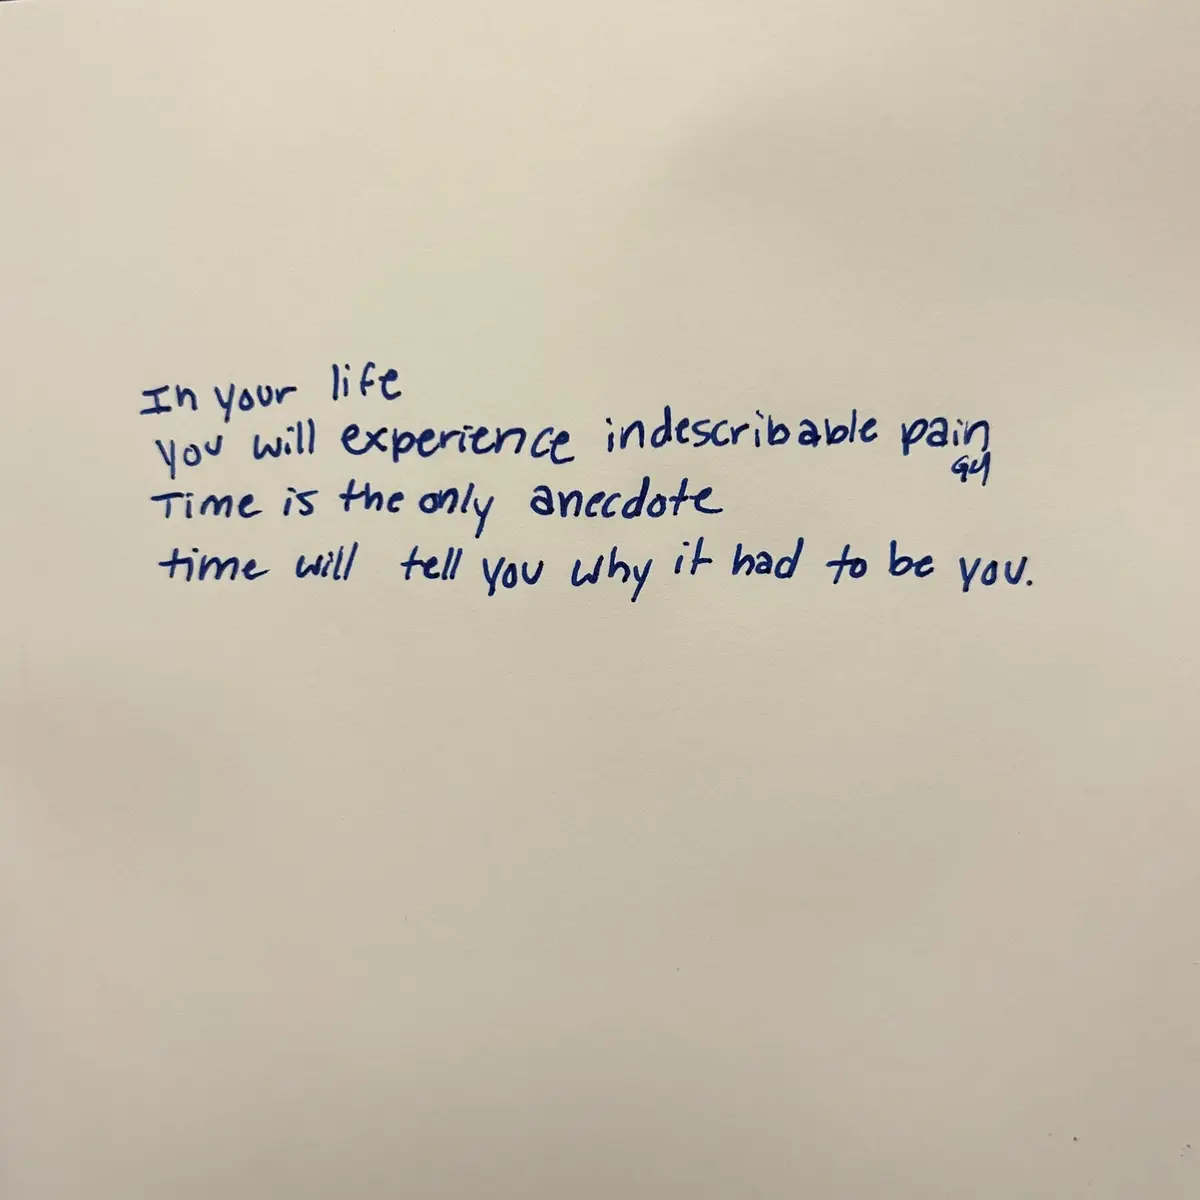 In your life
you will experience indescribable pain
Time is the only anecdote
time will tell you why it had to be you.